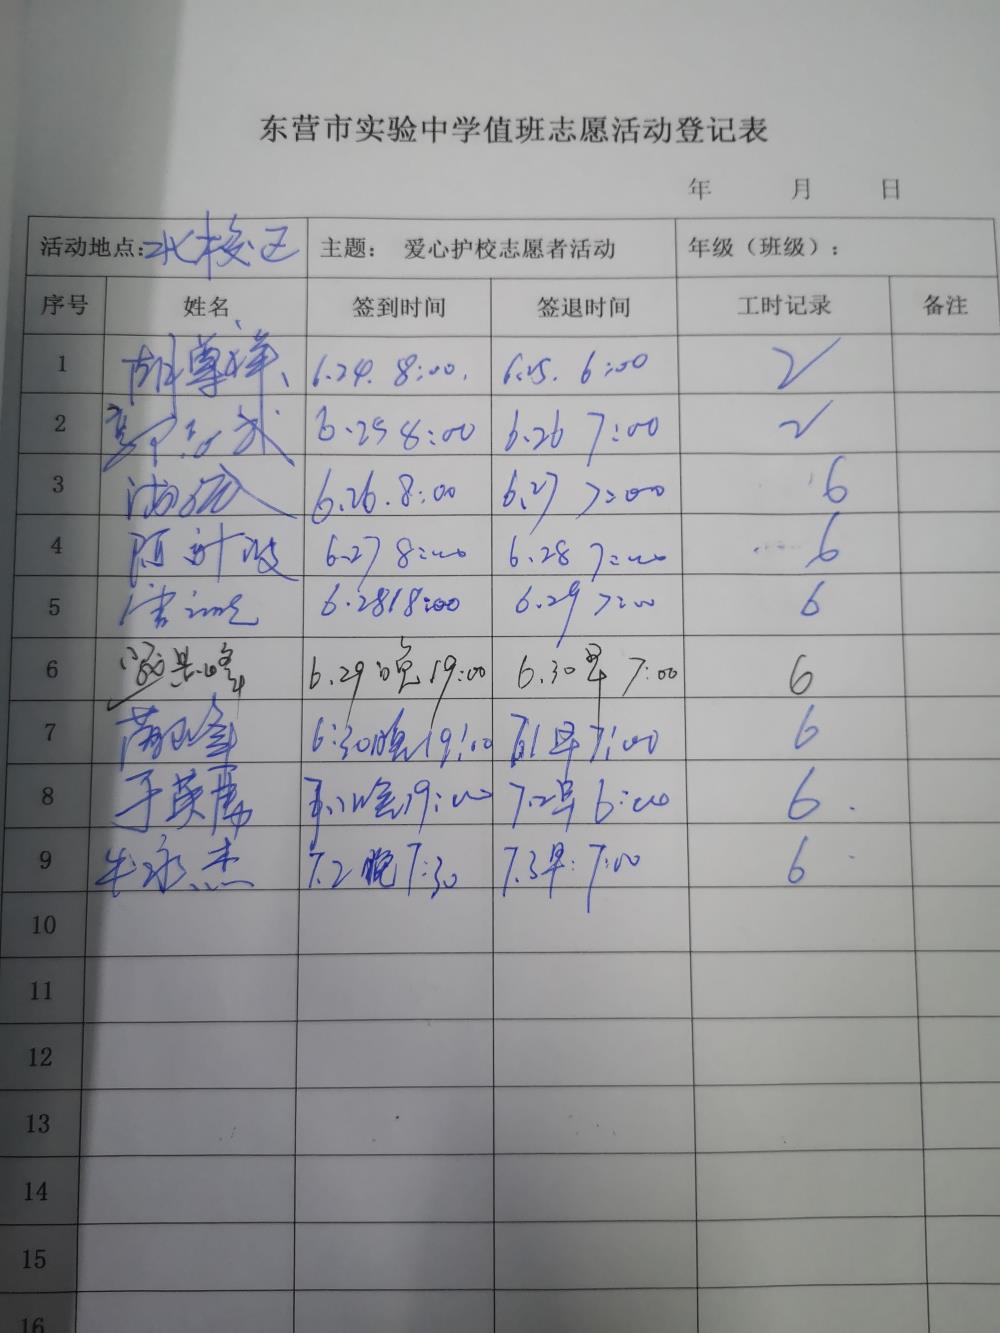 东营市实验中学值班志愿活动登记表
年 月 日
活动地点：北校区 主题： 爱心护校志愿者活动 年级（班级）：
序号 姓名 签到时间 签退时间 工时记录 备注
1 胡尊峰 6.24. 8:00. 6.25. 6:00 2
2 6.25 8:00 6.26 7:00 2
3 6.26. 8:00 6.27 7:00 6
4 6.27 8:00 6.28 7:00 6
5 6.28 18:00 6.29 7:00 6
6 6.29晚19:00 6.30早7:00 6
7 6:30晚19:00 7.1早7:00 6
8 于英展 7.1晚19:00 7.2早6:00 6
9 牛永杰 7.2晚7:30 7.3早7:00 6
10
11
12
13
14
15
16